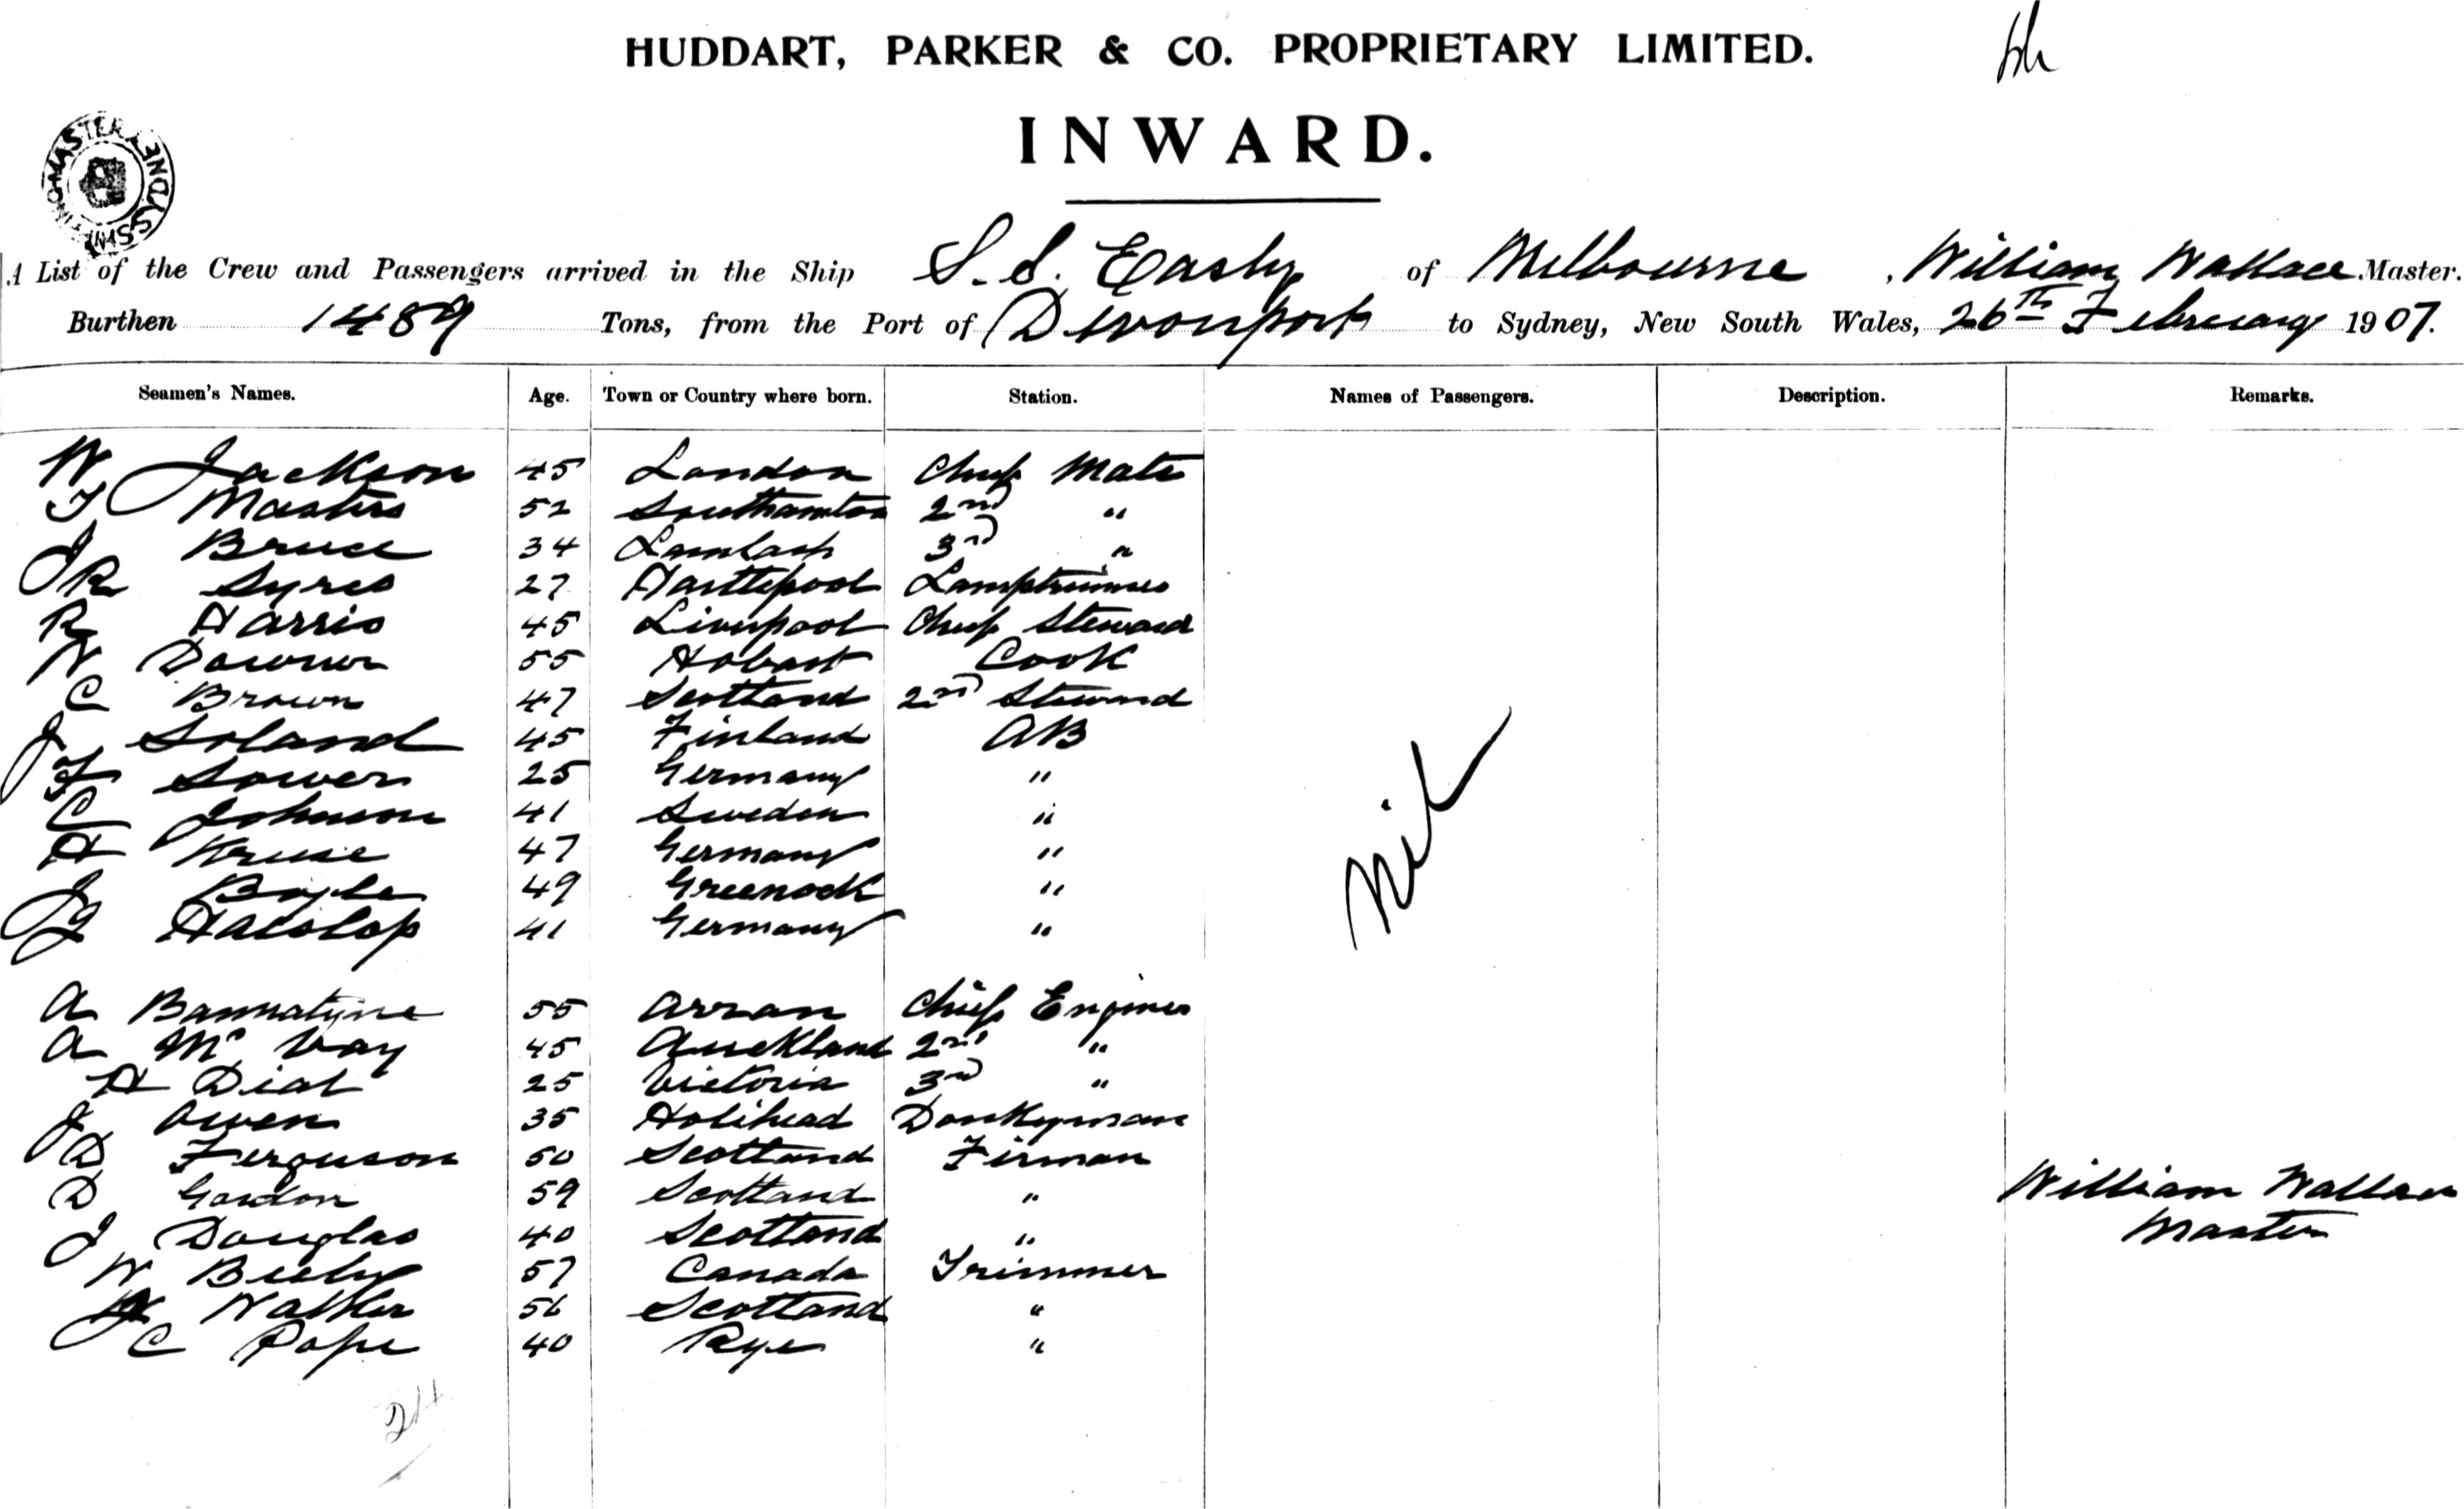 HUDDART, PARKER & CO. PROPRIETARY LIMITED.
INWARD.
A List of the Crew and Passengers arrived in the Ship S.S. Easby of Melbourne, William Wallace Master.
Burthen 1489 Tons, from the Port of Devonport to Sydney, New South Wales, 26th February 1907.
Seamen's Names. Age. Town or Country where born. Station. Names of Passengers. Description. Remarks.
W Jackson 45 London Chief Mate
T Masters 52 Southamton 2nd "
J Bruce 34 Lamlash 3rd "
J R Syres 27 Hartlepool Lamptrimmer
R Harris 45 Liverpool Chief Steward
W Downer 55 Hobart Cook
C Brown 47 Scotland 2nd Steward
J Soland 45 Finland AB
F Sower 25 Germany "
C Johnson 41 Sweden "
H Kruse 47 Germany "
J Boyle 49 Greenock "
J 41 Germany "
Nil
A Bannatyne 55 Arran Chief Engineer
A Mc Vay 45 Auckland 2nd "
H Dial 25 Victoria 3rd "
J Owen 35 Holihead Donkeyman
D Ferguson 50 Scotland Firman
D Gordon 59 Scotland "
J Douglas 40 Scotland "
W 57 Canada Trimmer
Walker 56 Scotland "
C Pope 40 Rye "
William Wallace
Master
24